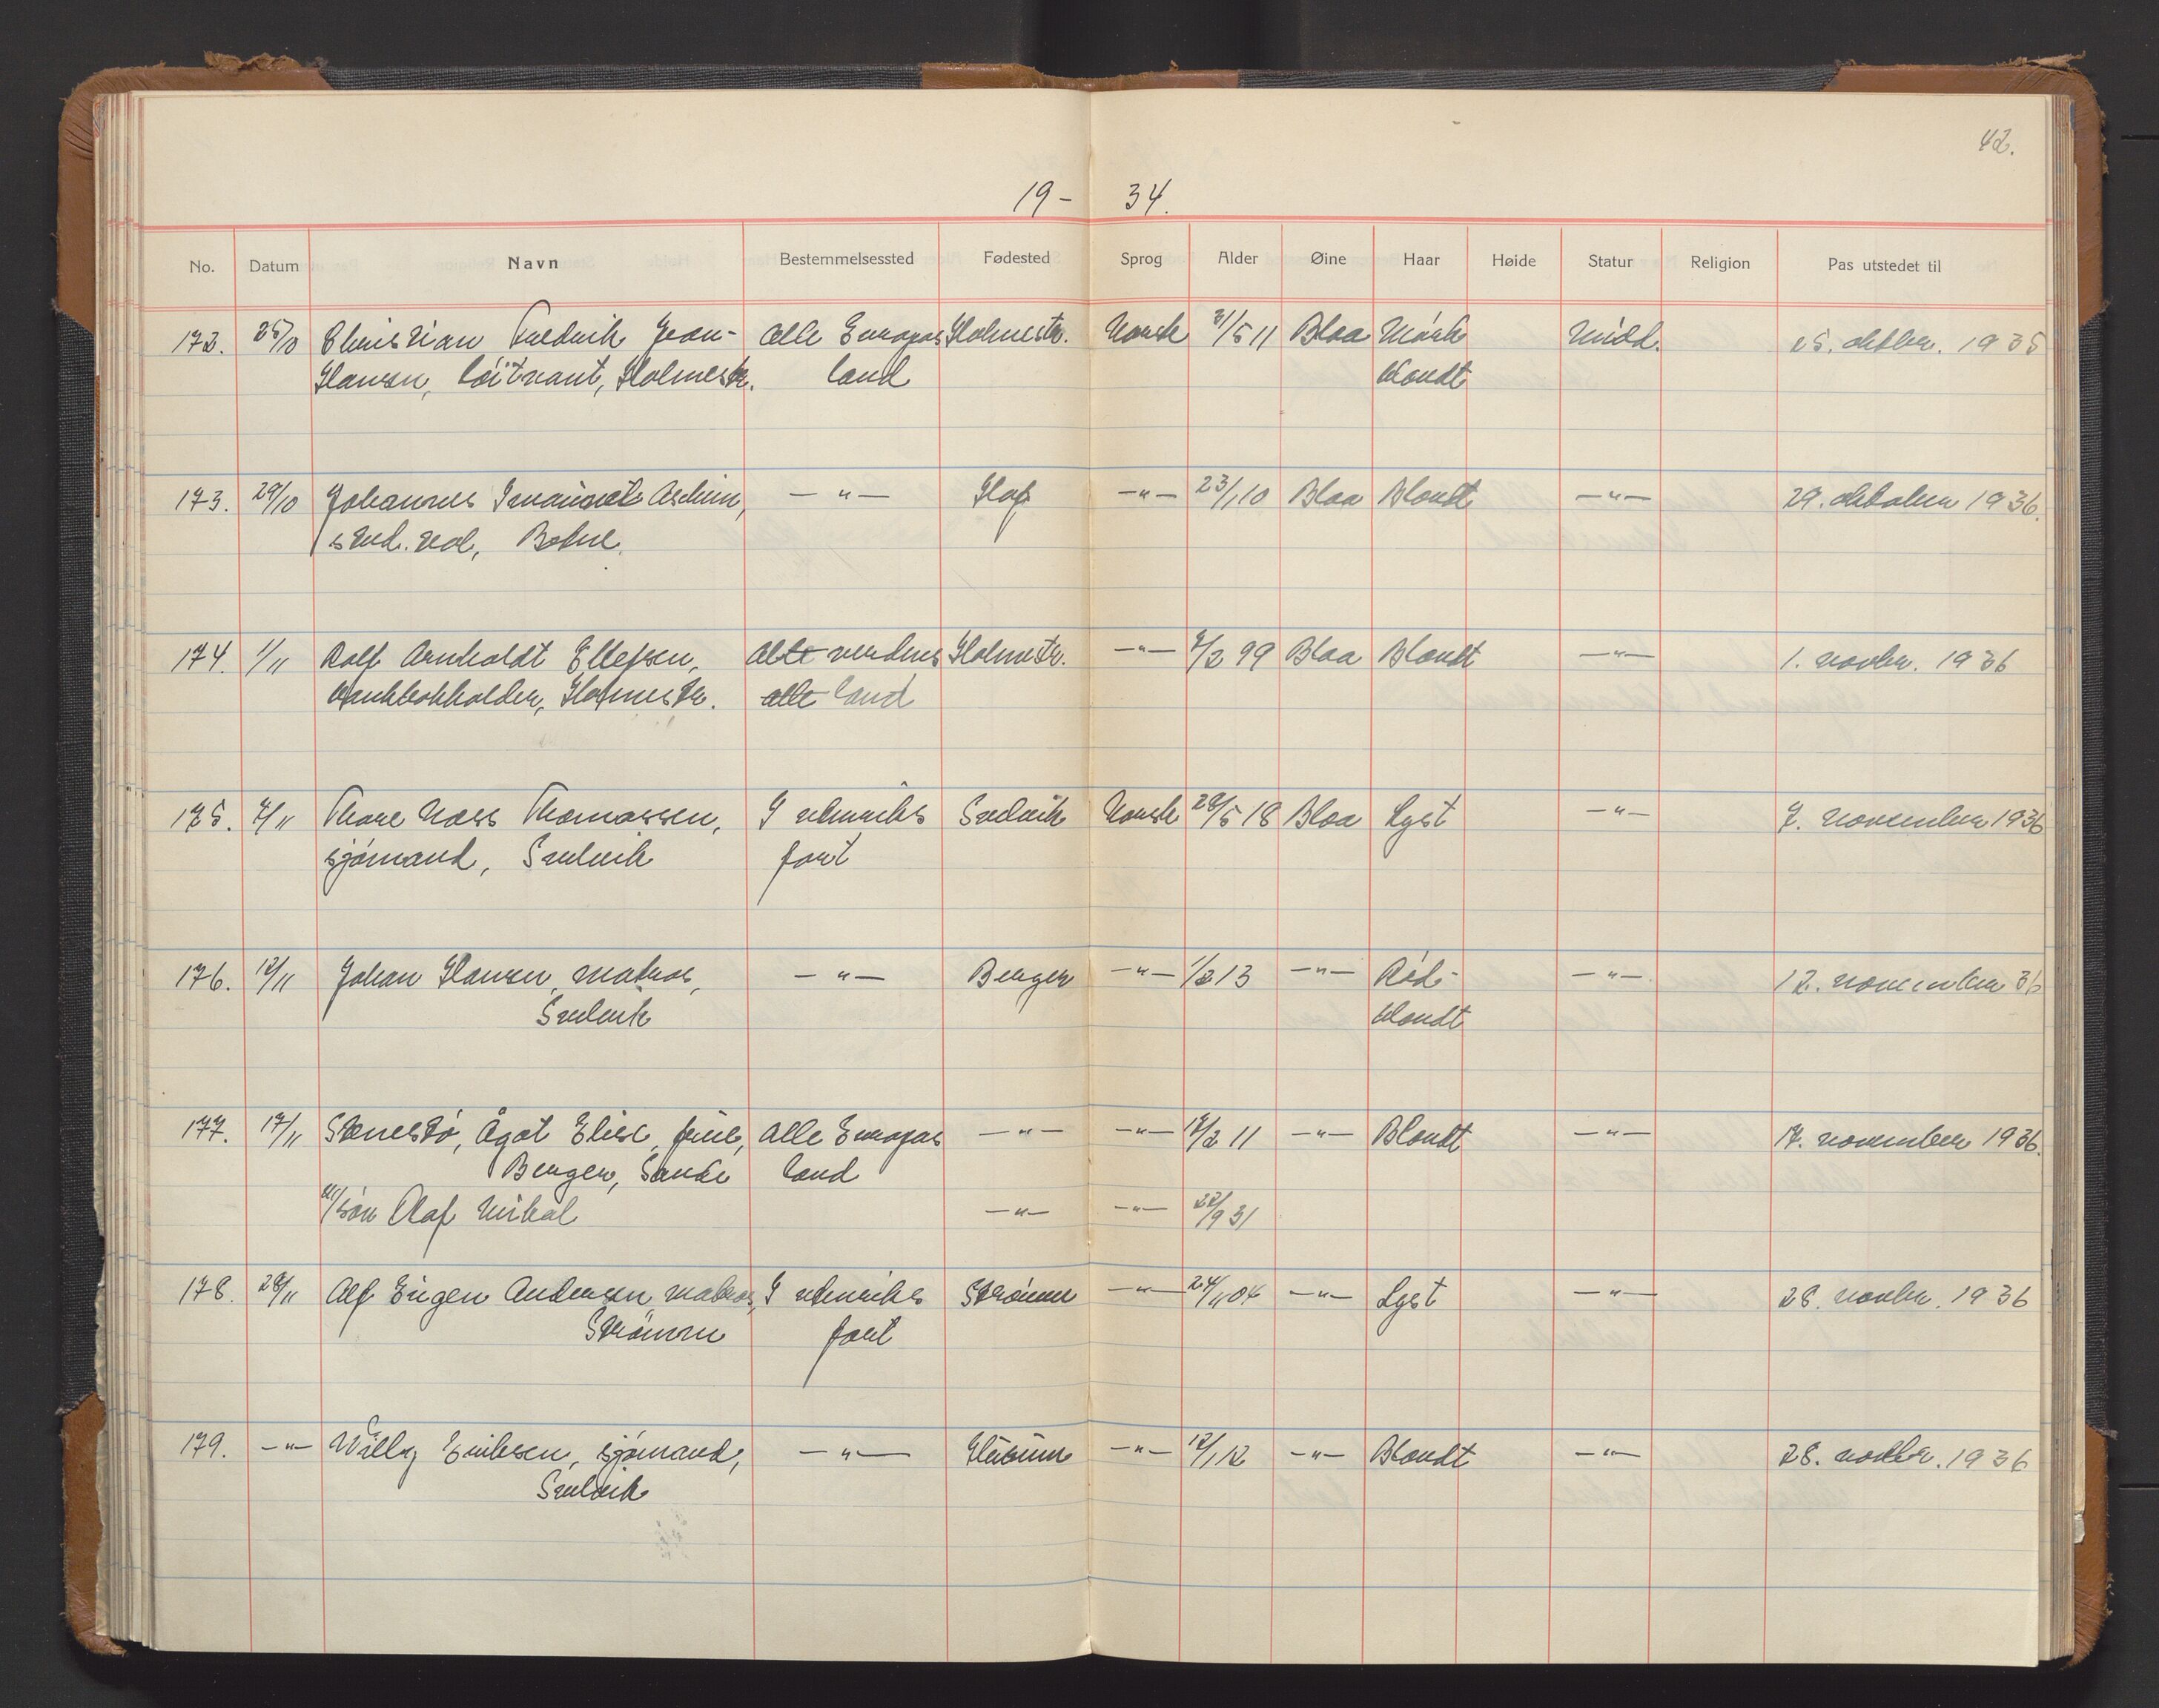 42.
19 - 34.
No. Datum Navn Bestemmelsessted Fødested Sprog Alder Øine Haar Høide Statur Religion Pas utstedet til
172. 25/10 Christian Fredrik Jean- alle Europas Holmestr. Norsk 31/5 11 Blaa Mørk Midd. 25. oktbr. 1935
Hansen, løitnant, Holmestr. land blondt
173. 29/10 Johannes Aschim, -"- Hof -"- 23/1 10 Blaa Blondt -"- 29. oktober 1936.
stud. real, Botne.
174. 1/11 Rolf Arnholdt Ellefsen, verdens Holmestr. -"- 4/2 99 Blaa Blondt -"- 1. novbr. 1936
bankbokholder, Holmestr. alle land
175. 7/11 Thore Næss Thomassen, I utenriks Svelvik Norsk 28/5 18 Blaa Lyst -"- 7. november 1936
sjømand, Svelvik fart
176. 12/11 Johan Hansen, matros, -"- Berger -"- 1/2 13 -"- Rød- -"- 12. november 36
Svelvik blondt
177. 17/11 Stenestø, Ågot Elise, frue, Alle Europas -"- -"- 17/2 11 -"- Blondt -"- 17. november 1936.
Berger, Sande land
m/søn Olaf Mikal -"- -"- 22/9 31
178. 28/11 Alf Eugen Andersen, matros, I utenriks Strømm -"- 24/11 04 -"- Lyst -"- 28. novbr. 1936
Strømm fart
179. -"- Willy Eriksen, sjømand, -"- Hurum -"- 12/1 12 -"- Blondt -"- 28. novbr. 1936
Svelvik